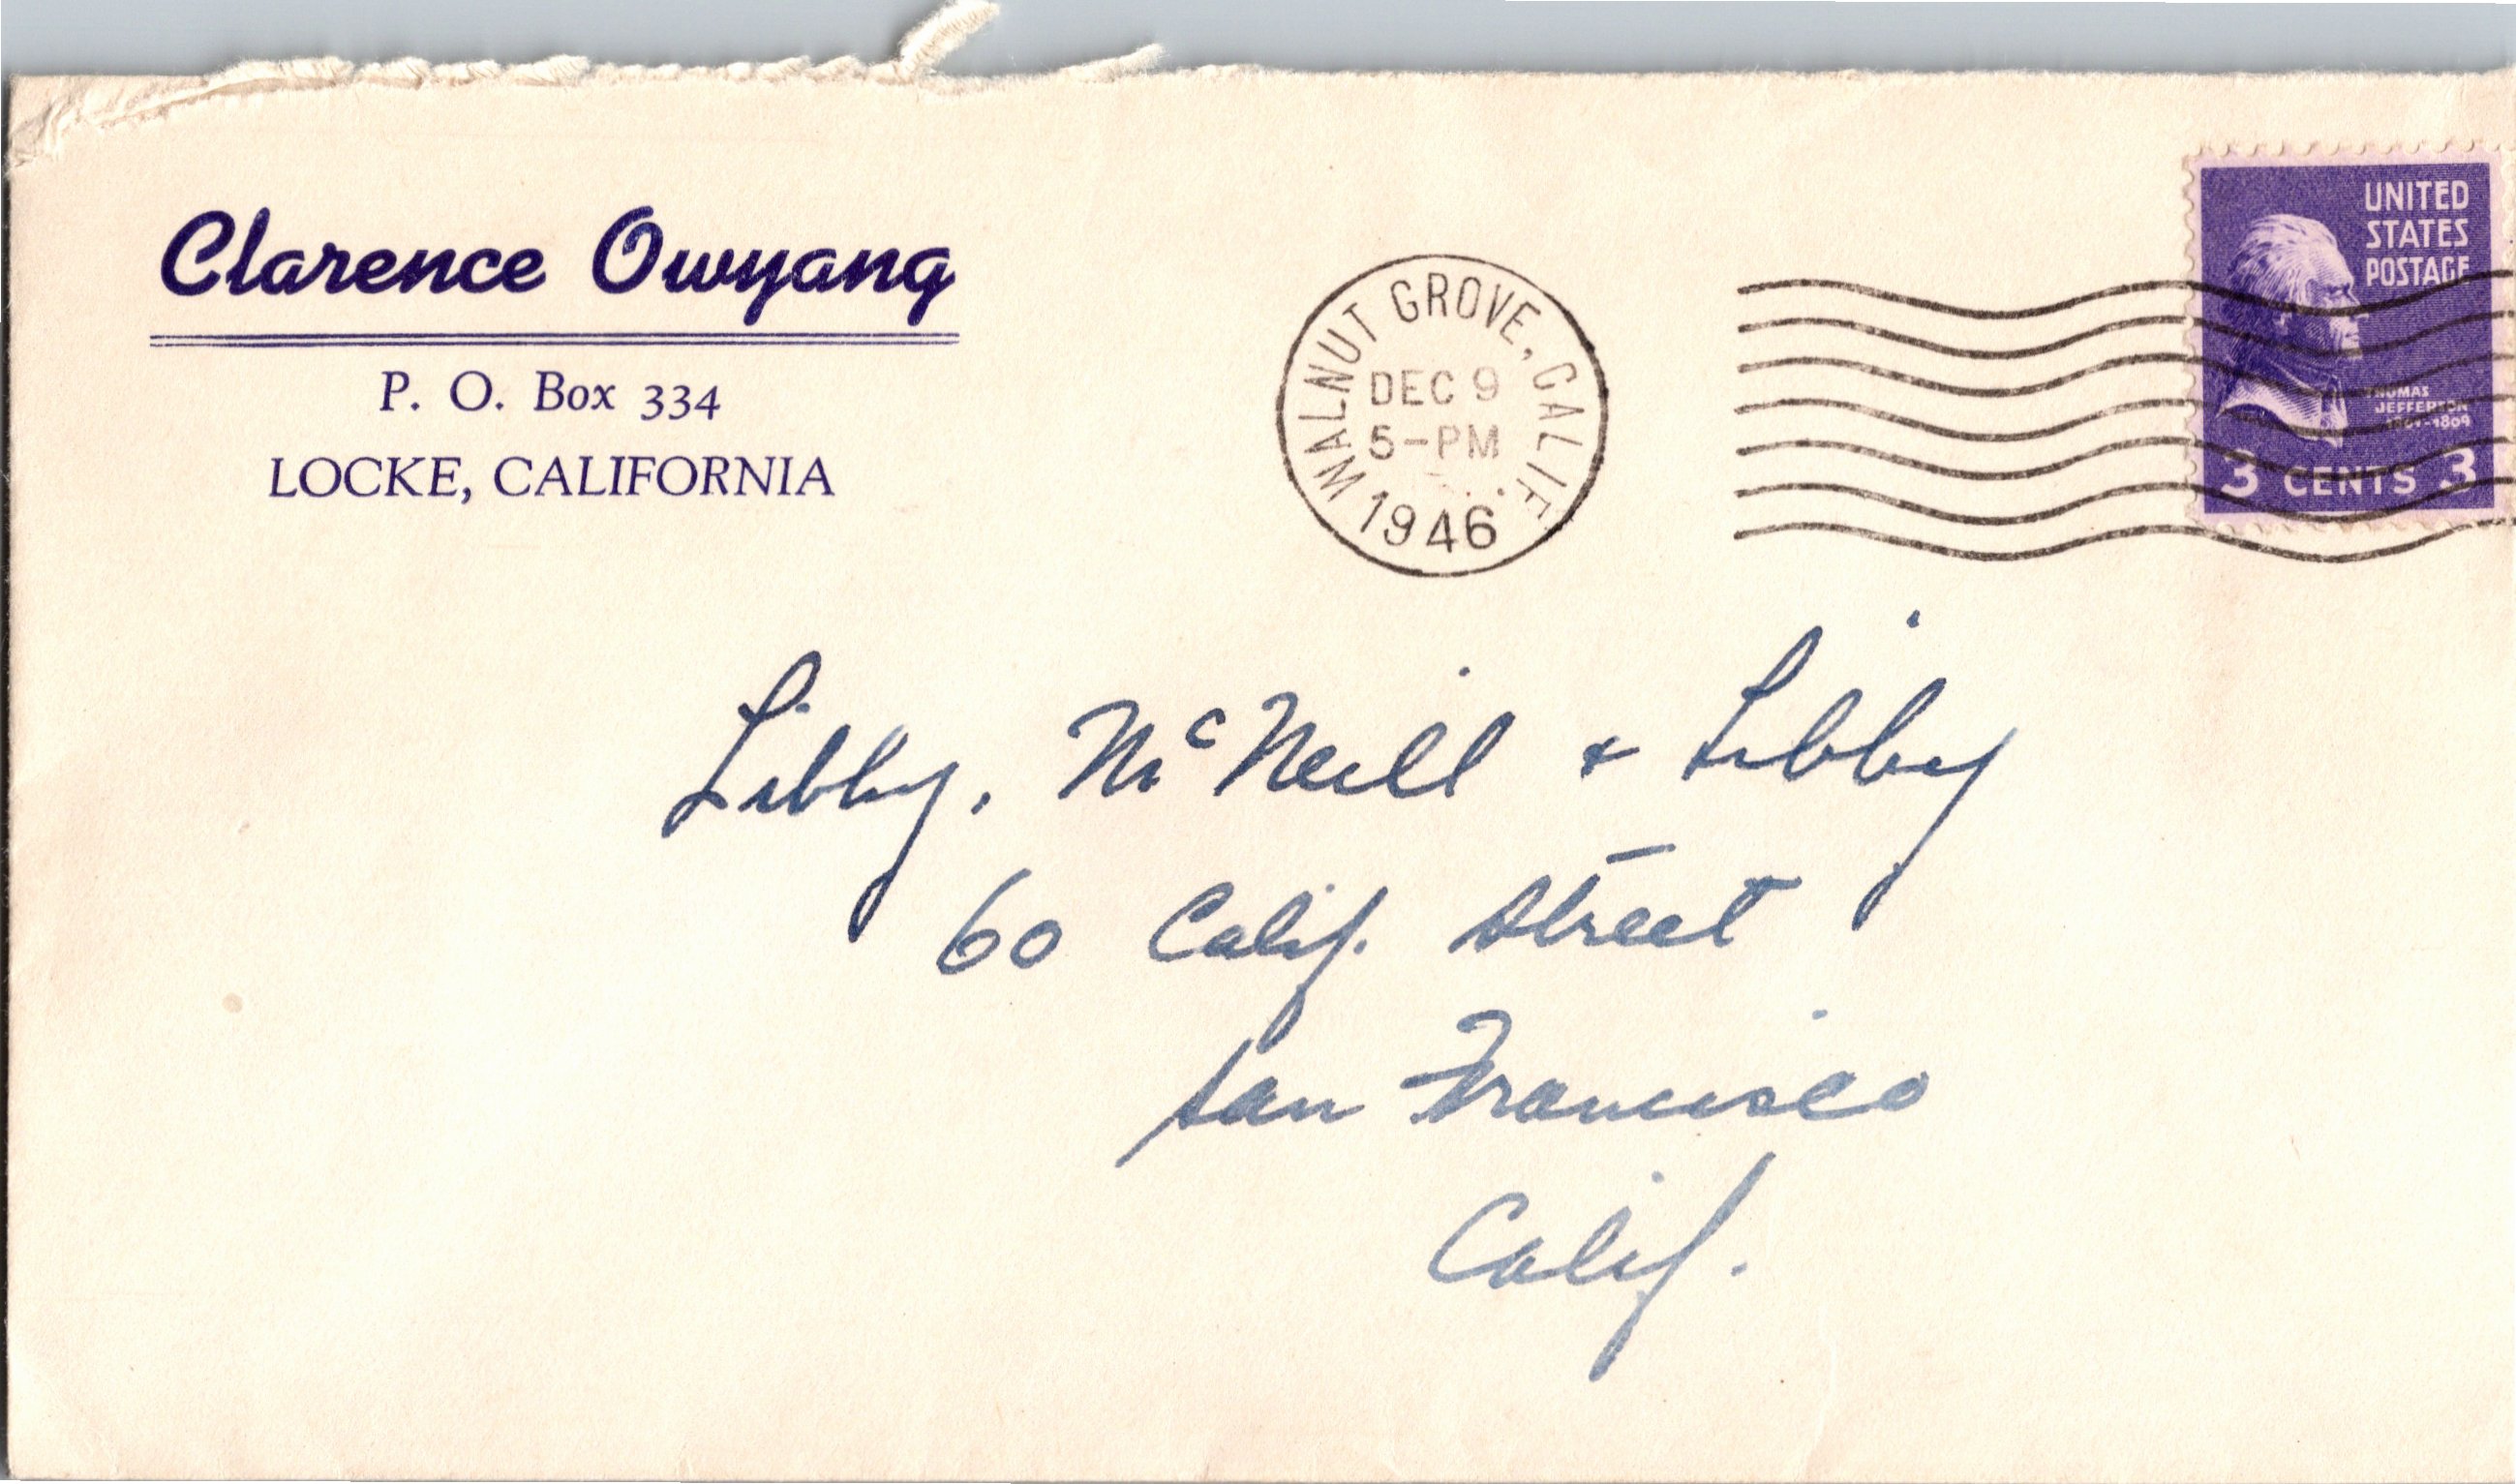 Clarence Owyang
P. O. Box 334
LOCKE, CALIFORNIA
WALNUT GROVE, CALIF.
DEC 9
5-PM
1946
UNITED
STATES
POSTAGE
THOMAS
JEFFERSON
1801-1809
3 CENTS 3
Libby, McNeill & Libby
60 Calif. Street
San Francisco
Calif.